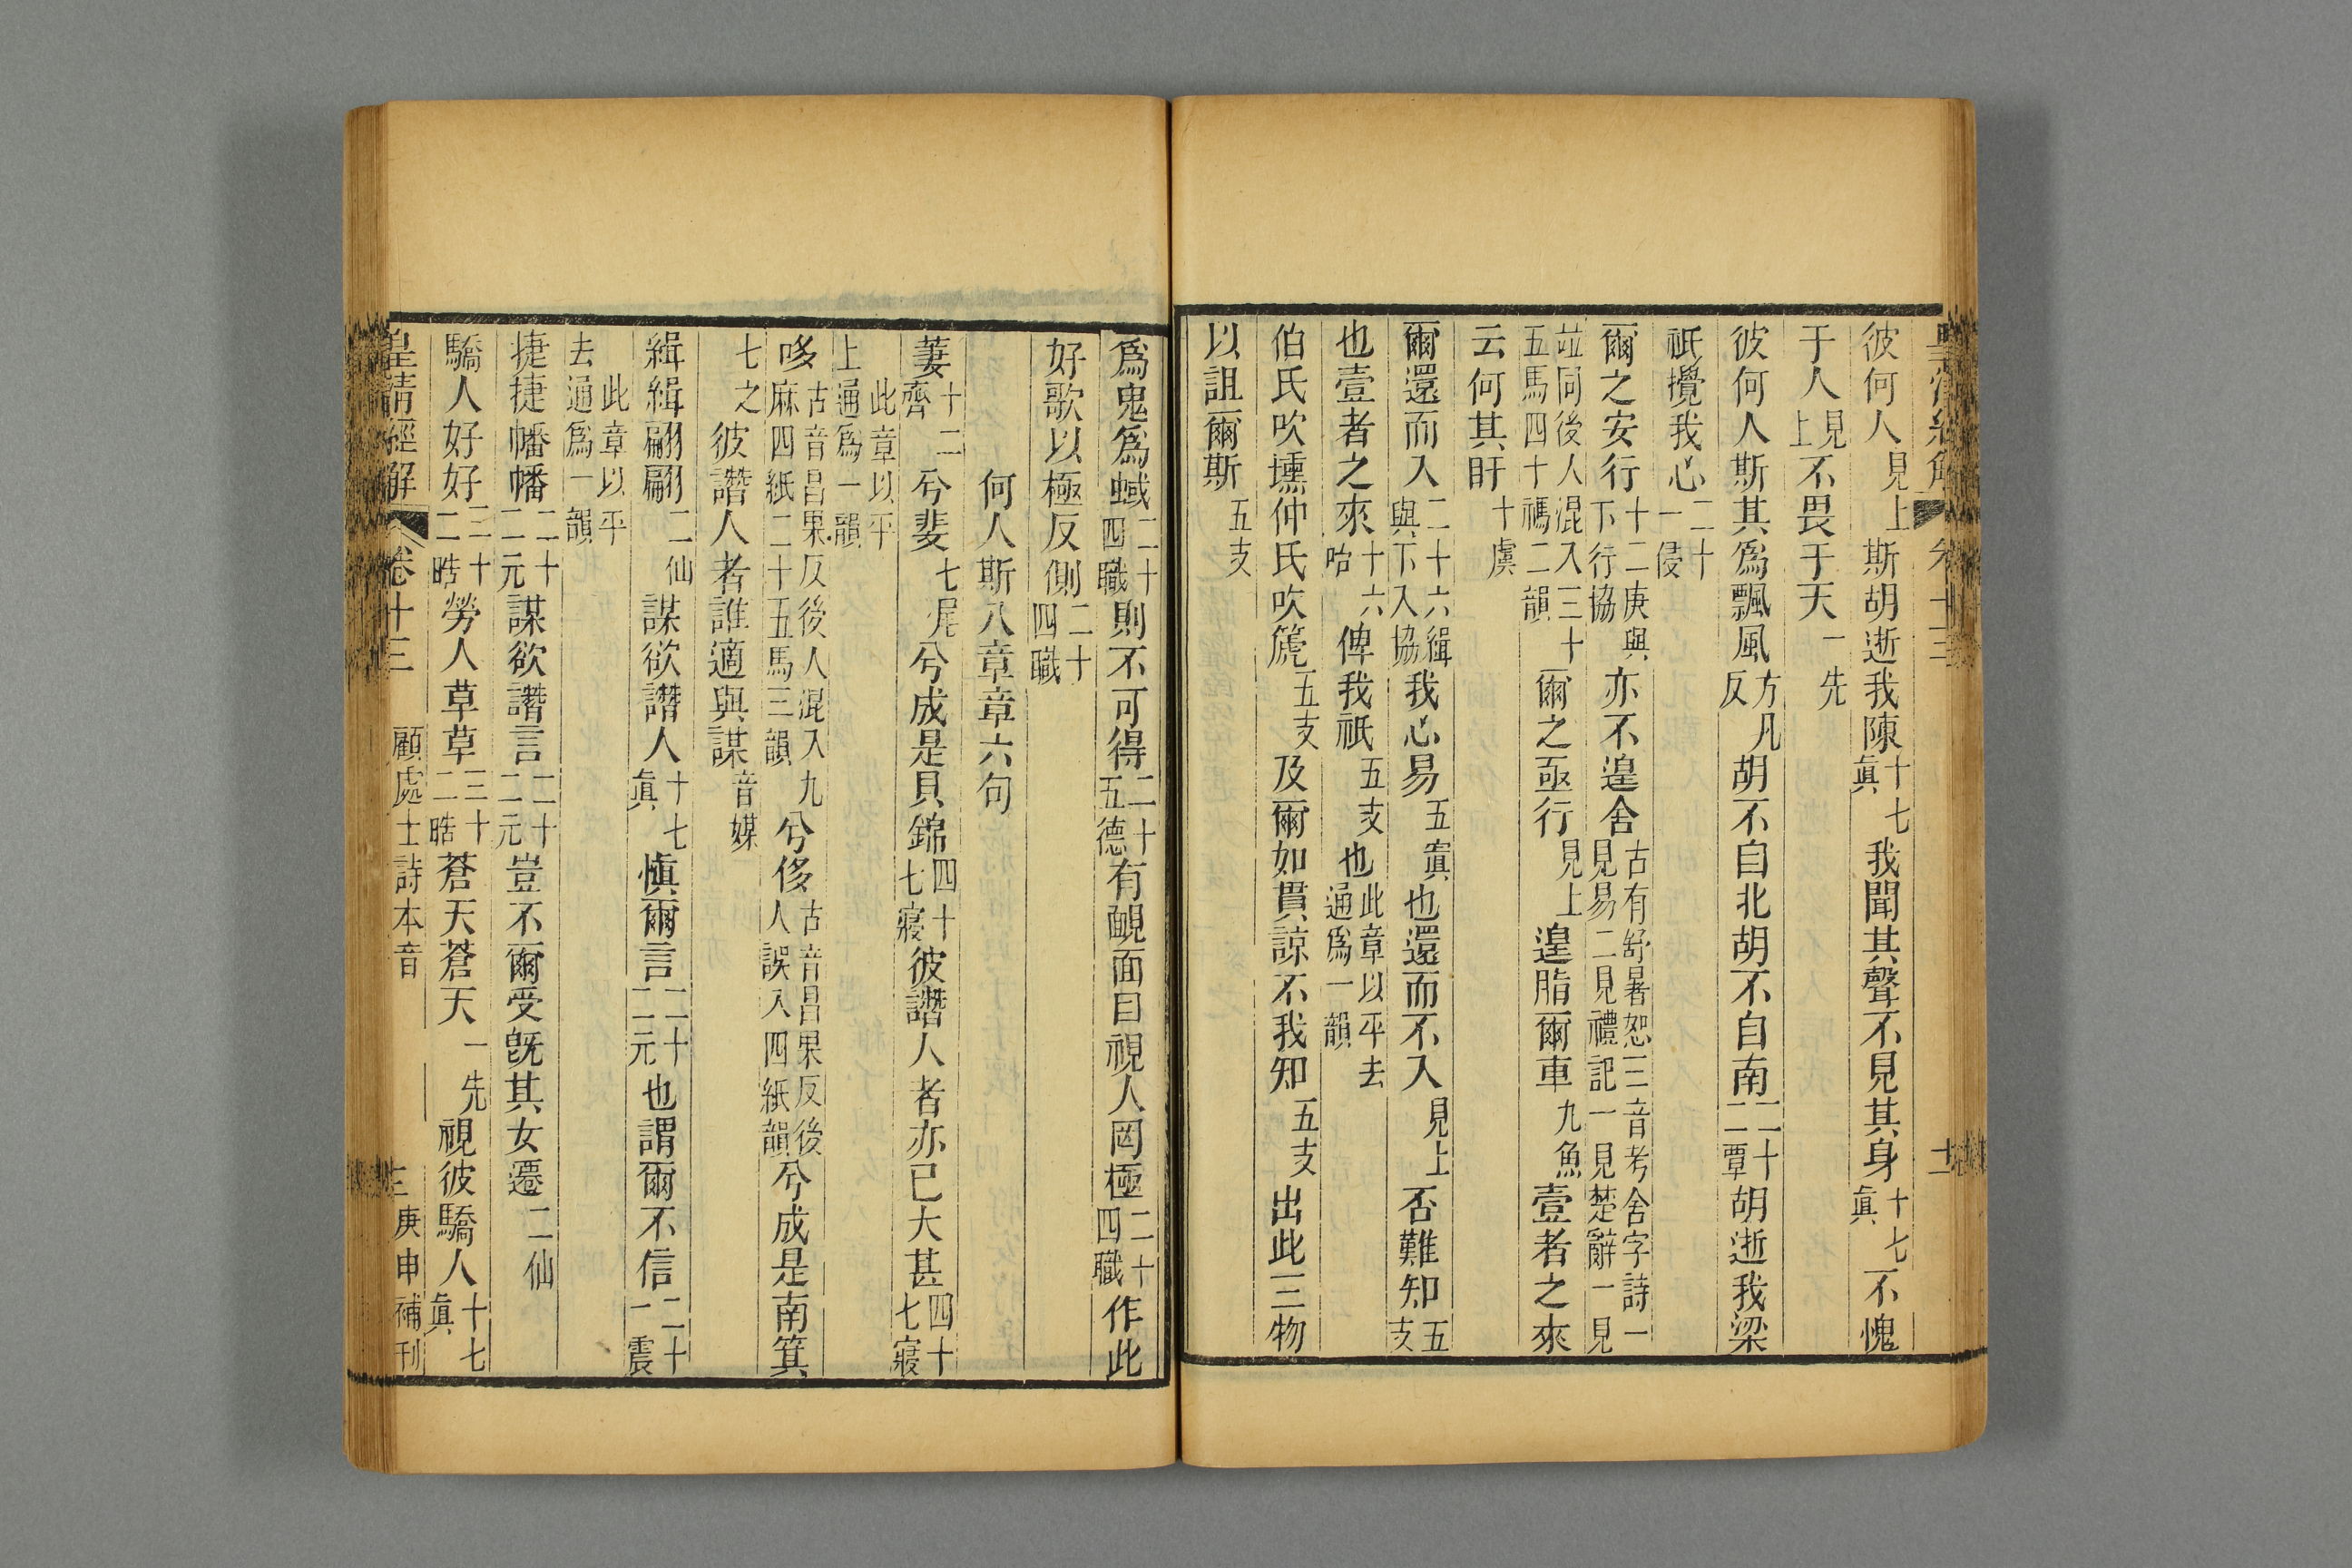 彼何人見上斯胡逝我陳十七眞我聞其聲不見其身十七眞不愧
于人見上不畏于天一先
彼何人斯其爲飄風方凡反胡不自北胡不自南二十二覃胡逝我梁
祇攪我心二十一侵
爾之安行十二庚與下行協亦不遑舍古有舒暑恕三音考舍字詩一見易二見禮記一見楚辭一見
竝同後人混入三十五馬四十禡二韻爾之亟行見上遑脂爾車九魚壹者之來
云何其盱十虞
爾還而入二十六緝與下入協我心易五寘也還而不入見上否難知五支
也壹者之來十六咍俾我祇五支也此章以平去通爲一韻
伯氏吹壎仲氏吹篪五支及爾如貫諒不我知五支出此三物
以詛爾斯五支
爲鬼爲蜮二十四職則不可得二十五德有靦面目視人罔極二十四職作此
好歌以極反側二十四職
何人斯八章章六句
萋十二齊兮斐七尾兮成是貝錦四十七寢彼譖人者亦已大甚四十七寢
此章以平上通爲一韻
哆古音昌果反後人混入九麻四紙二十五馬三韻兮侈古音昌果反後人誤入四紙韻兮成是南箕
七之彼譖人者誰適與謀音媒
緝緝翩翩二仙謀欲譖人十七眞愼爾言二十二元也謂爾不信二十一震
此章以平去通爲一韻
捷捷幡幡二十二元謀欲譖言二十二元豈不爾受旣其女遷二仙
驕人好好三十二晧勞人草草三十二晧蒼天蒼天一先視彼驕人十七眞
皇淸經解 卷十三 顧處士詩本音 庚申補刊